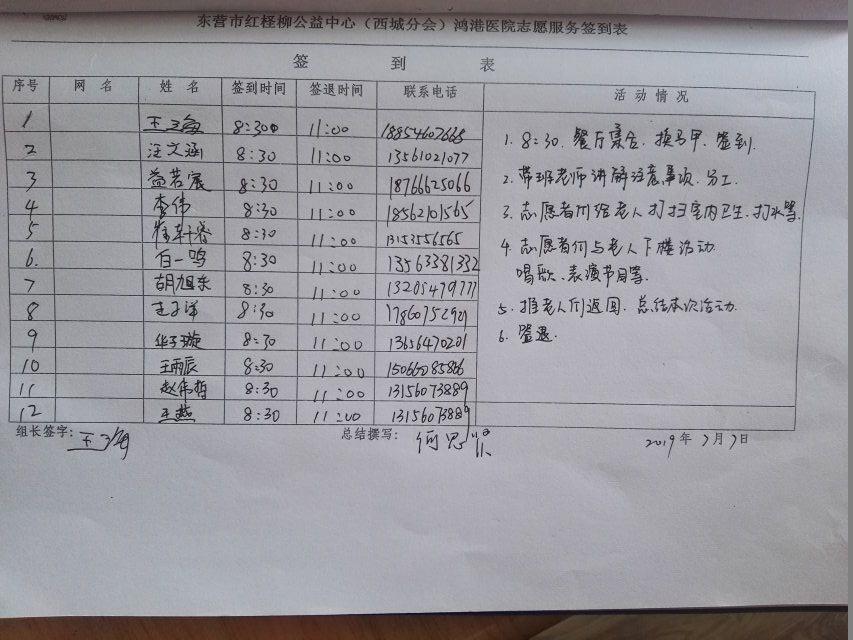 东营市红柽柳公益中心（西城分会）鸿港医院志愿服务签到表
签 到 表
序号 网 名 姓 名 签到时间 签退时间 联系电话 活动情况
1 8:30 11:00 18854607668
2 汪文涵 8:30 11:00 13561021077
3 益若宸 8:30 11:00 18766625066
4 李伟 8:30 11:00 18562101565
5 8:30 11:00 13153556565
6. 白一鸣 8:30 11:00 13563381332
7 胡旭东 8:30 11:00
8 8:30 11:00 17860752901
9 华子璇 8:30 11:00 13656470201
10 王雨辰 8:30 11:00 15066085866
11 赵伟哲 8:30 11:00 13156073889
12 王燕 8:30 11:00 13156073889
1. 8:30. 餐厅集合. 换马甲. 签到.
2. 带班老师讲解注意事项. 分工.
3. 志愿者们给老人打扫室内卫生. 打水等.
4. 志愿者们与老人下楼活动.
唱歌. 表演节目等.
5. 推老人们返回. 总结本次活动.
6. 签退.
组长签字: 总结撰写: 何思
2019年7月7日